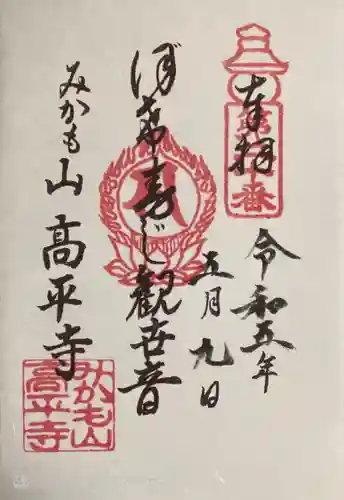 奉拝
令和五年
五月九日
ぼけ寿じ観世音
みかも山
高平寺
みかも山
高平寺